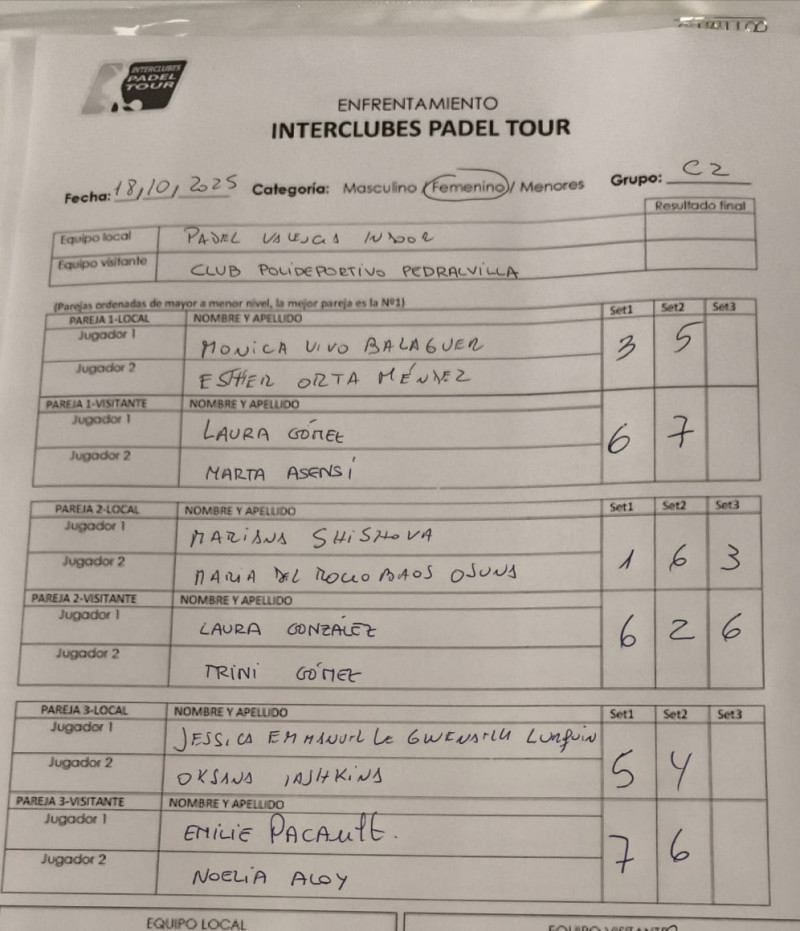 INTERCLUBES
PADEL
TOUR
ENFRENTAMIENTO
INTERCLUBES PADEL TOUR
Fecha: 18, 10, 2025 Categoría: Masculino / Femenino / Menores Grupo: C2
Resultado final
Equipo local PADEL VALENCIA INDOOR
Equipo visitante CLUB POLIDEPORTIVO PEDRALVILLA
(Parejas ordenadas de mayor a menor nivel, la mejor pareja es la Nº1)
PAREJA 1-LOCAL NOMBRE Y APELLIDO Set1 Set2 Set3
Jugador 1 MONICA VIVO BALAGUER 3 5
Jugador 2 ESTHER ORTA MÉNDEZ
PAREJA 1-VISITANTE NOMBRE Y APELLIDO
Jugador 1 LAURA GÓMEZ 6 7
Jugador 2 MARTA ASENSI
PAREJA 2-LOCAL NOMBRE Y APELLIDO Set1 Set2 Set3
Jugador 1 MARIANA SHISHOVA 1 6 3
Jugador 2 MARIA DEL ROCIO BAOS OSUNA
PAREJA 2-VISITANTE NOMBRE Y APELLIDO
Jugador 1 LAURA GONZALEZ 6 2 6
Jugador 2 TRINI GÓMEZ
PAREJA 3-LOCAL NOMBRE Y APELLIDO Set1 Set2 Set3
Jugador 1 JESSICA EMMANUELLE GWENAELLE LURQUIN 5 4
Jugador 2 OKSANA IASHKINA
PAREJA 3-VISITANTE NOMBRE Y APELLIDO
Jugador 1 EMILIE PACAULT. 7 6
Jugador 2 NOELIA ALOY
EQUIPO LOCAL EQUIPO VISITANTE